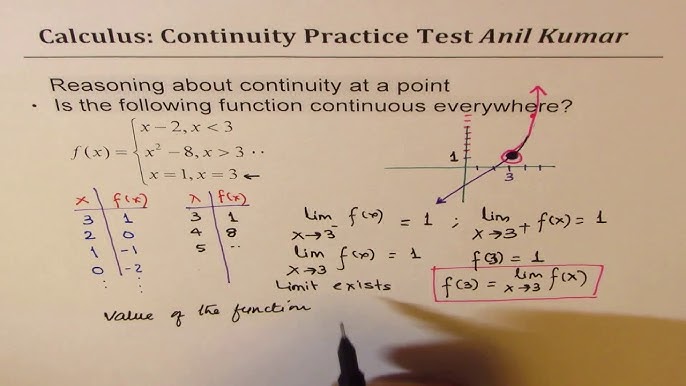 Calculus: Continuity Practice Test Anil Kumar
Reasoning about continuity at a point
• Is the following function continuous everywhere?
f(x) = { x − 2, x < 3
x² − 8, x > 3 ··
x = 1, x = 3 ←
x | f(x)
3 | 1
2 | 0
1 | -1
0 | -2
⋮ | ⋮
x | f(x)
3 | 1
4 | 8
5 | ··
1
3
lim x→3⁻ f(x) = 1 ; lim x→3+ f(x) = 1
lim x→3 f(x) = 1 f(3) = 1
Limit exists
f(3) = lim x→3 f(x)
Value of the function